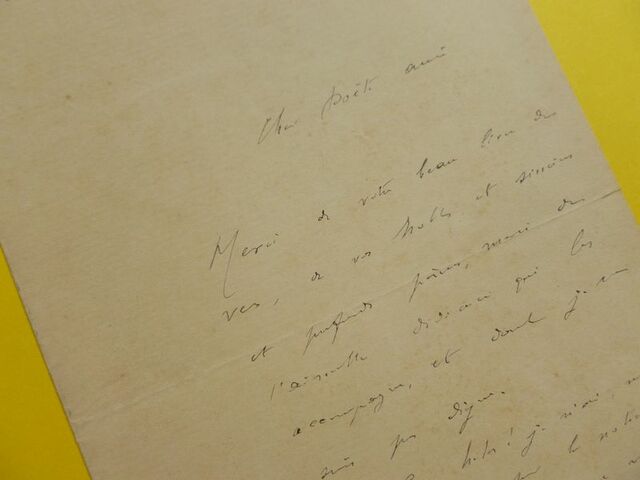 Cher Poète ami
Merci de votre beau livre de
vers, de vos nobles et sincères
et profonds poèmes, merci de
l'aimable dédicace qui les
accompagne, et dont je ne
suis pas digne.
hélas ! je n'ai,